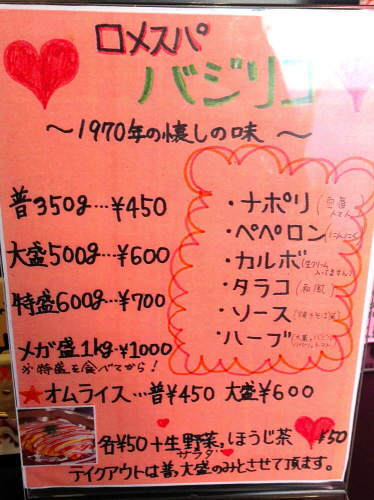 ロメスパ
バジリコ
～1970年の懐しの味～
普350g…¥450
大盛500g…¥600
特盛600g…¥700
メガ盛1kg・¥1000
※特盛を食べてから!
・ナポリ(
・ペペロン(にんにく)
・カルボ(生クリーム入ってません)
・タラコ(和風)
・ソース(焼きそば
・ハーブ(大葉、バジル
★オムライス…普¥450 大盛¥600
各¥50+生野菜,ほうじ茶 ¥50
サラダ
テイクアウトは普,大盛のみとさせて頂ます。